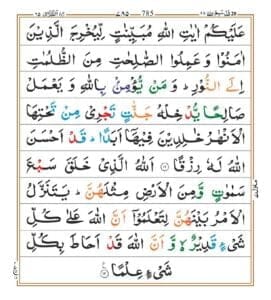 785
عَلَيْكُمْ اٰيٰتِ اللّٰهِ مُبَيِّنٰتٍ لِّيُخْرِجَ الَّذِيْنَ
اٰمَنُوْا وَعَمِلُوا الصّٰلِحٰتِ مِنَ الظُّلُمٰتِ
اِلَى النُّوْرِ ؕ وَمَنْ يُّؤْمِنْۢ بِاللّٰهِ وَيَعْمَلْ
صَالِحًا يُّدْخِلْهُ جَنّٰتٍ تَجْرِيْ مِنْ تَحْتِهَا
الْاَنْهٰرُ خٰلِدِيْنَ فِيْهَاۤ اَبَدًا ؕ قَدْ اَحْسَنَ
اللّٰهُ لَهٗ رِزْقًا ۝۱۱ اَللّٰهُ الَّذِيْ خَلَقَ سَبْعَ
سَمٰوٰتٍ وَّمِنَ الْاَرْضِ مِثْلَهُنَّ ؕ يَتَنَزَّلُ
الْاَمْرُ بَيْنَهُنَّ لِتَعْلَمُوْۤا اَنَّ اللّٰهَ عَلٰى كُلِّ
شَيْءٍ قَدِيْرٌ ۙ۬ وَّ اَنَّ اللّٰهَ قَدْ اَحَاطَ بِكُلِّ
شَيْءٍ عِلْمًا ۝۱۲